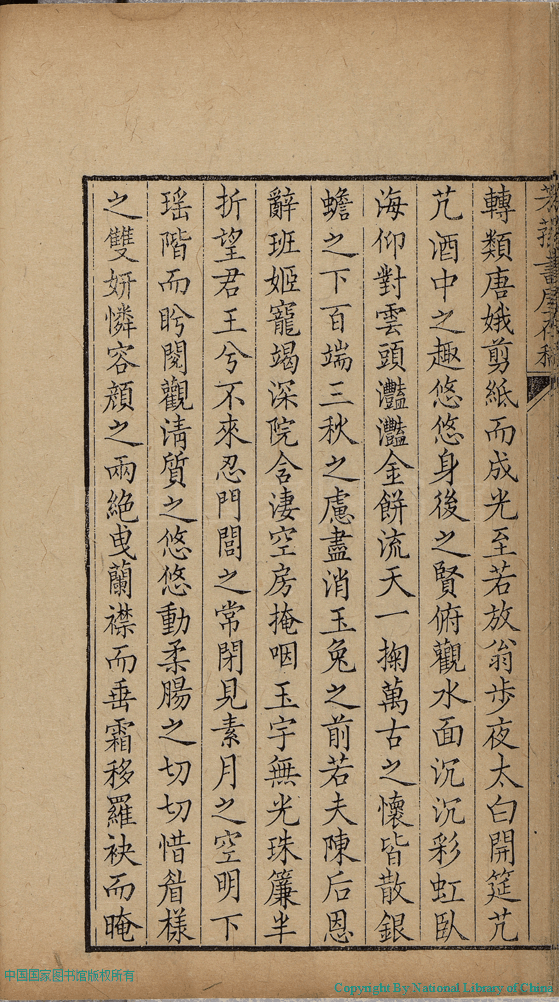 轉類唐娥剪紙而成光至若放翁步夜太白開筵芃
芃酒中之趣悠悠身後之賢俯觀水面沉沉彩虹臥
海仰對雲頭灩灩金餅流天一掬萬古之懷皆散銀
蟾之下百端三秋之慮盡消玉兔之前若夫陳后恩
辭班姬寵竭深院含淒空房掩咽玉宇無光珠簾半
折望君王兮不來忍門閭之常閉見素月之空明下
瑶階而眄閱觀清質之悠悠動柔腸之切切惜眉様
之雙妍憐容顔之兩絶曵蘭襟而垂霜移羅袂而晻
中国国家图书馆版权所有
Copyright By National Library of China